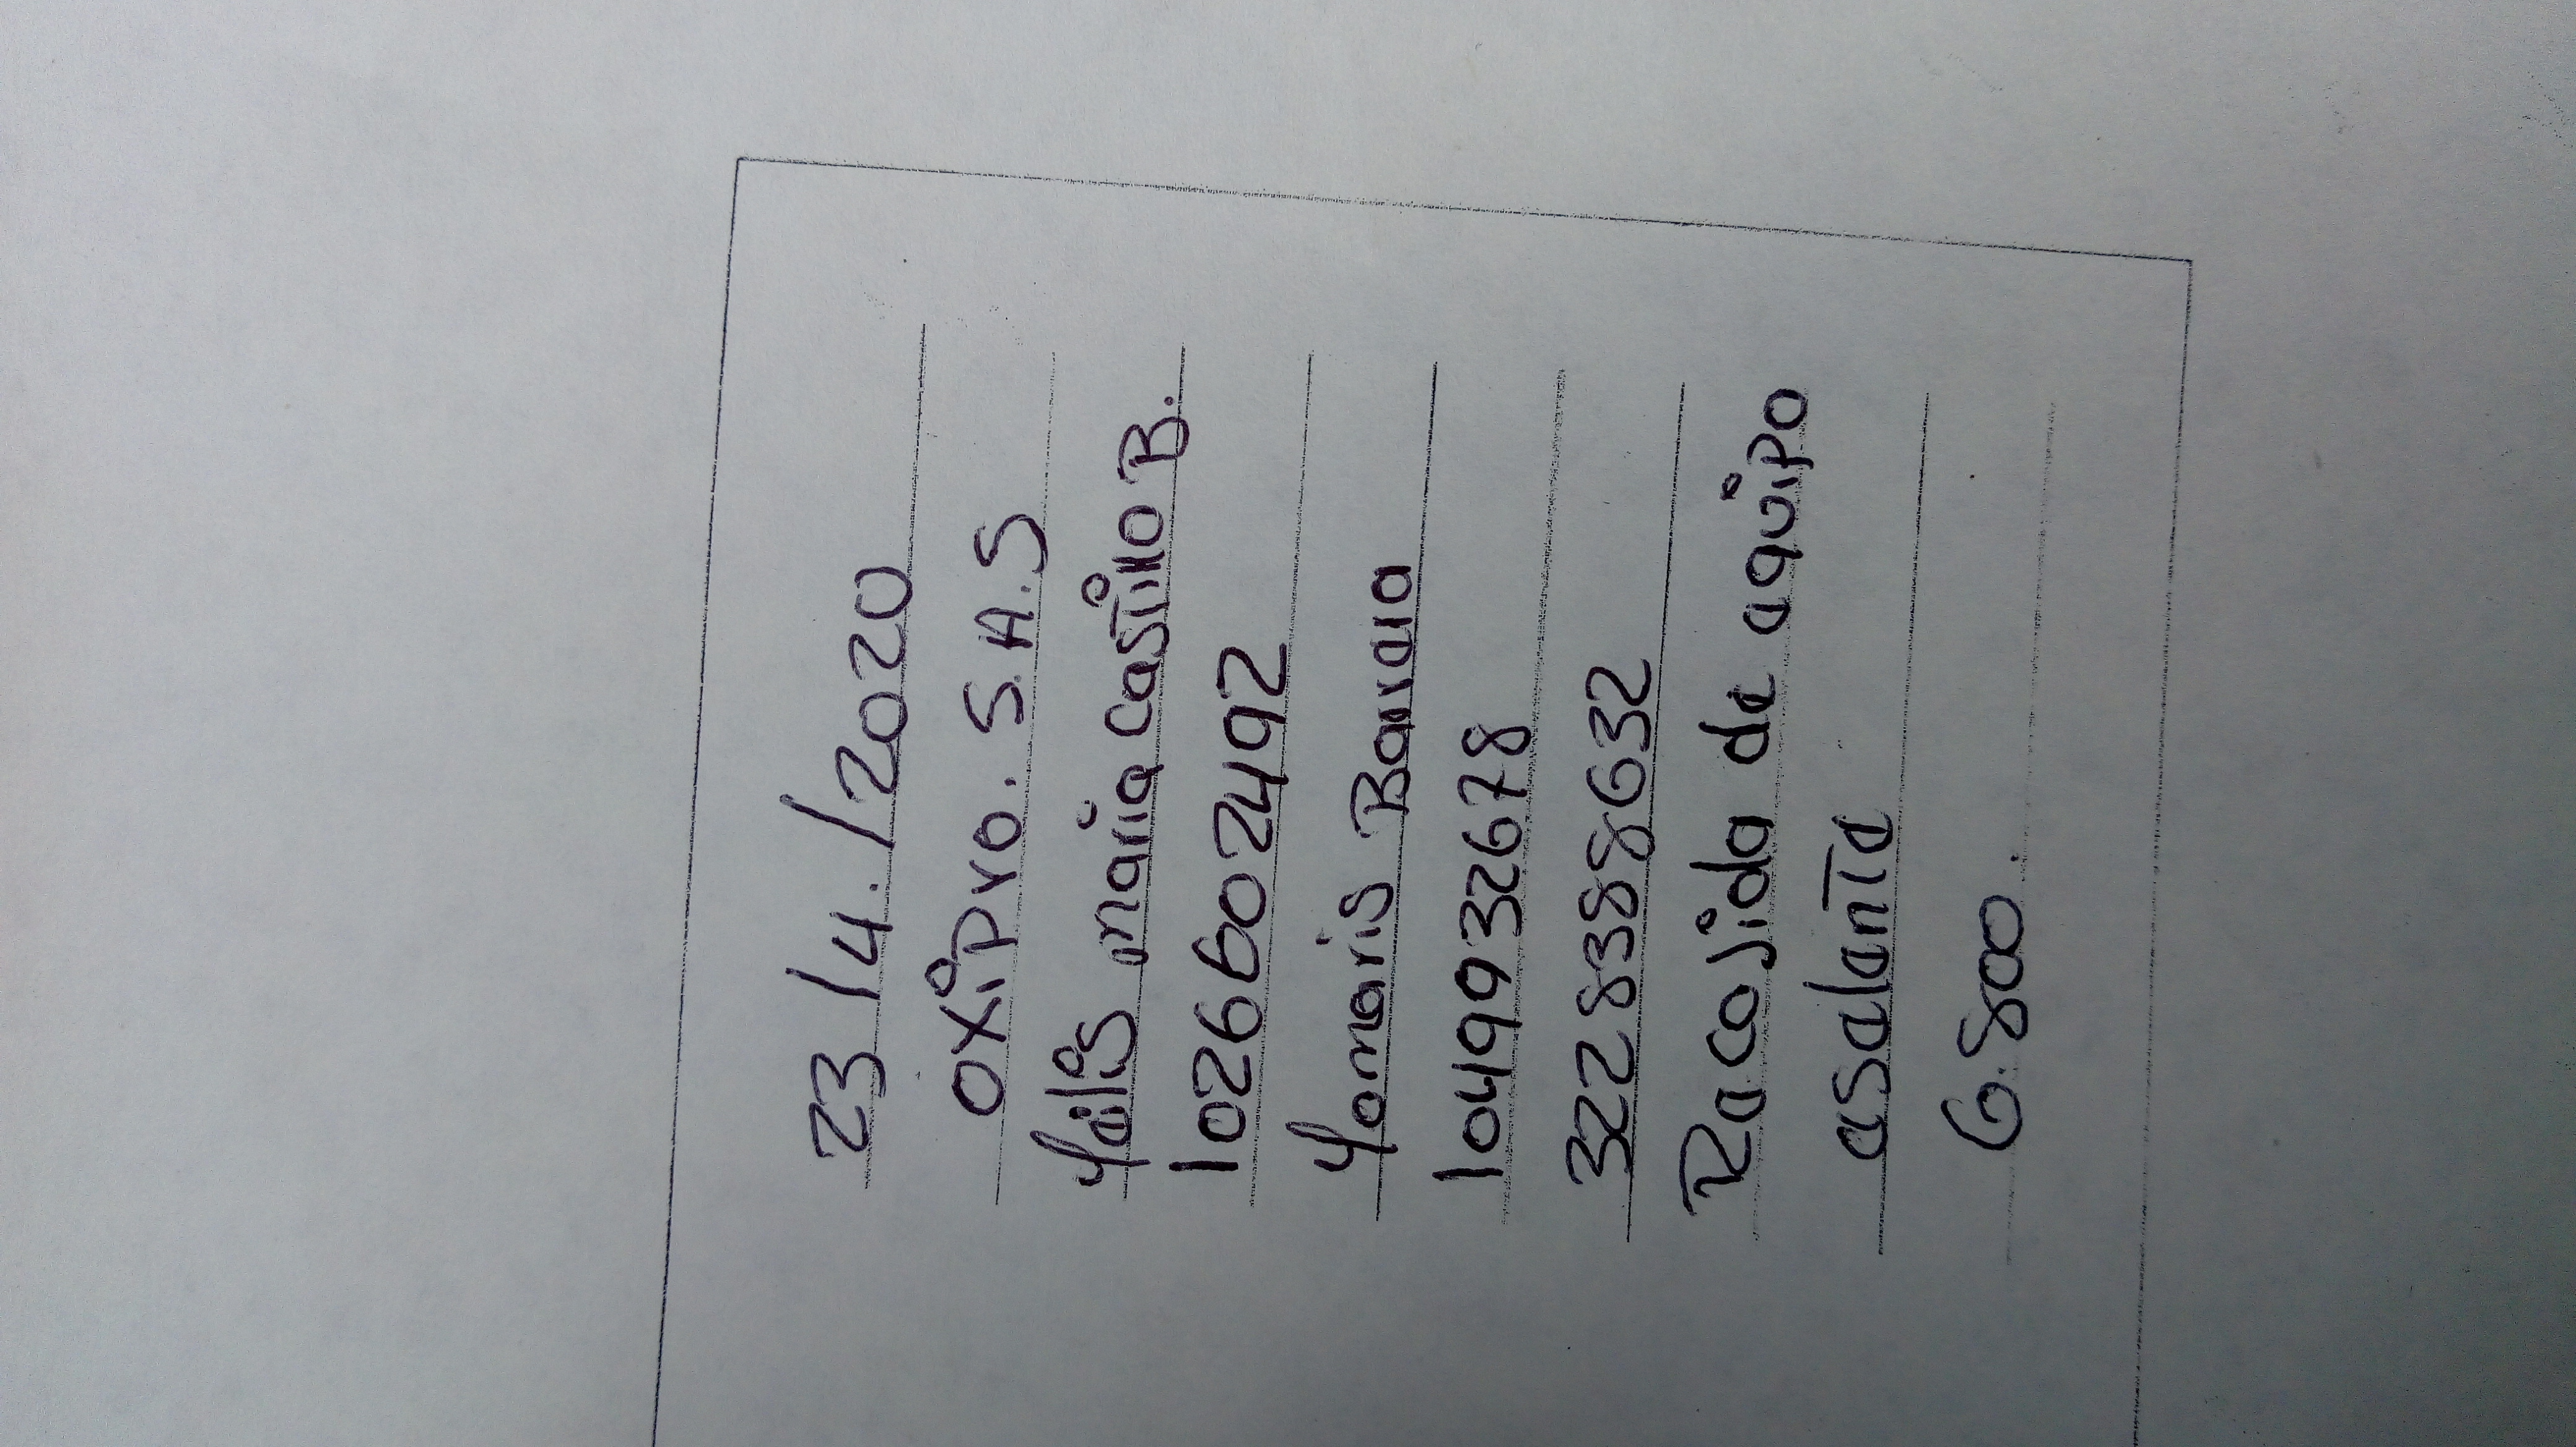 23/4./2020
OXiPro. S.A.S
Yailis maria castillo B.
1026602492
Yomaris Barua
1049932678
3228388632
Recojida de equipo
asalante
6.800.